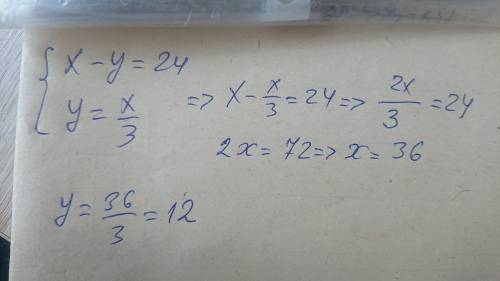 x - y = 24
y = x/3 => x - x/3 = 24 => 2x/3 = 24
2x = 72 => x = 36
y = 36/3 = 12